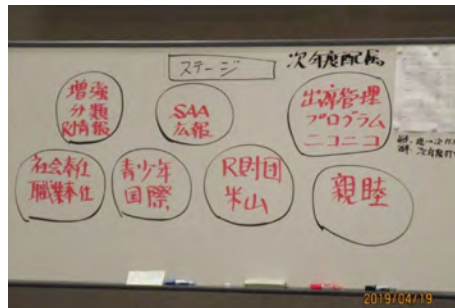 ステージ
次年度配属
増強
分類
R情報
SAA
広報
出席管理
プログラム
ニコニコ
社会奉仕
職業奉仕
青少年
国際
R財団
米山
親睦
2019/04/19